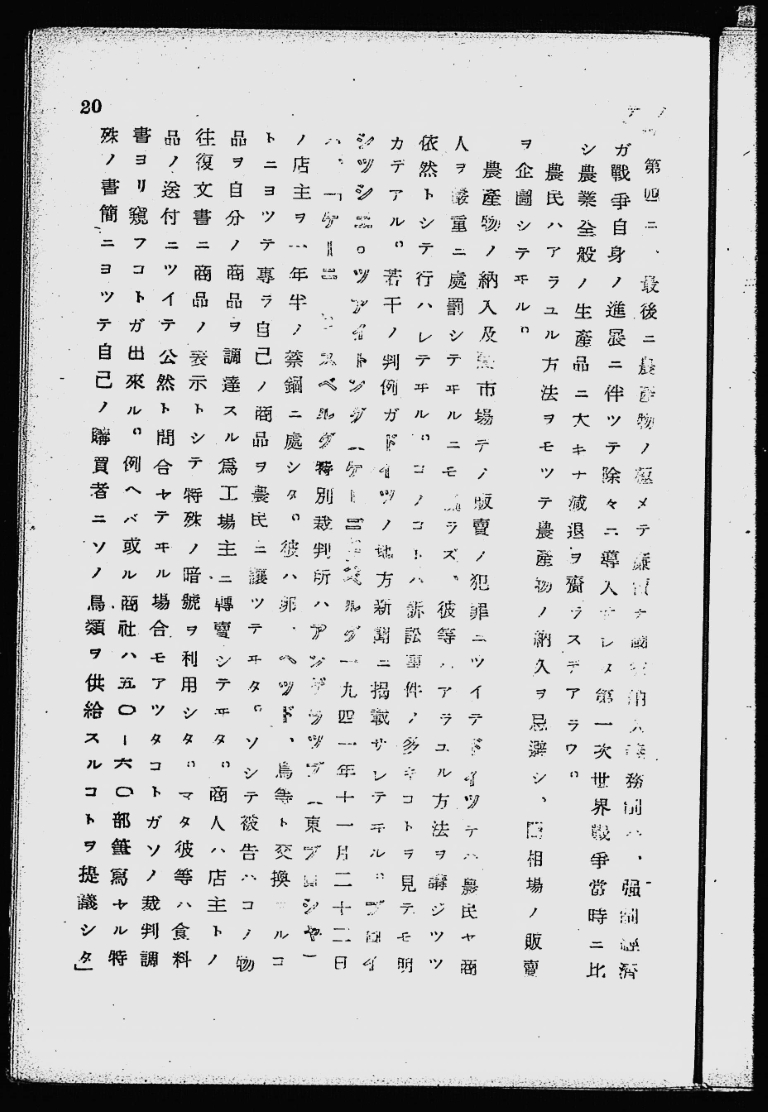 第四ニ、最後ニ農産物ノ極メテ廉價ナ國家納入義務制ハ、强制經濟
ガ戰爭自身ノ進展ニ伴ツテ除々ニ導入サレタ第一次世界戰爭當時ニ比
シ農業全般ノ生產品ニ大キナ減退ヲ齎ラスデアラウ。
農民ハアラユル方法ヲモツテ農産物ノ納入ヲ忌避シ、闇相場ノ販賣
ヲ企圖シテヰル。
農產物ノ納入及ビ市場デノ販賣ノ犯罪ニツイテドイツデハ農民ヤ商
人ヲ嚴重ニ處罰シテヰルニモ ラズ、彼等ハアラユル方法ヲ講ジツツ
依然トシテ行ハレテヰル。コノコトハ訴訟事件ノ多キコトヲ見テモ明
カデアル。若干ノ判例ガドイツノ地方新聞ニ揭載サレテヰル。プロイ
シツシエ。ツアイトング(ケーニヒスベルグ一九四一年十一月二十二日
ハ、「ケーニヒスベルグ特別裁判所ハアン (東プロシヤ)
ノ店主ヲ一年半ノ禁錮ニ處シタ。彼ハ卵、ヘツド、鳥等ト交換スルコ
トニヨツテ專ラ自己ノ商品ヲ農民ニ讓ツテヰタ。ソシテ被告ハコノ物
品ヲ自分ノ商品ヲ調達スル爲工場主ニ轉賣シテヰタ。商人ハ店主トノ
往復文書ニ商品ノ表示トシテ特殊ノ暗號ヲ利用シタ。マタ彼等ハ食料
品ノ送付ニツイテ公然ト問合ヤテヰル場合モアツタコトガソノ裁判調
書ヨリ窺フコトガ出來ル。例ヘバ或ル商社ハ五〇-六〇部謄寫ヤル特
殊ノ書簡ニヨツテ自己ノ購買者ニソノ鳥類ヲ供給スルコトヲ提議シタ」
20